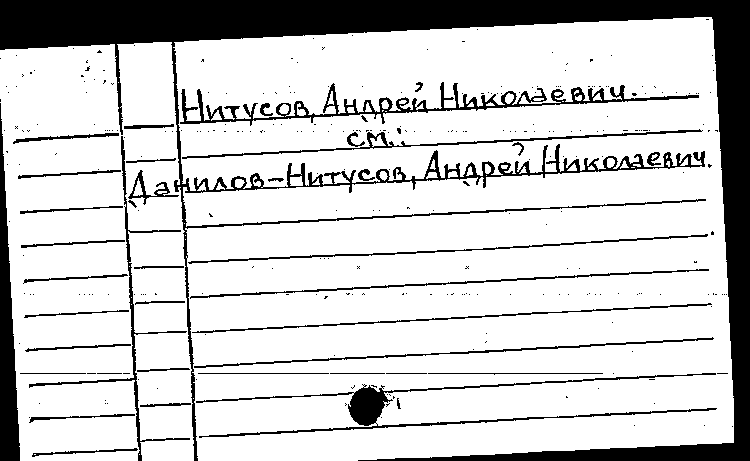 Нитусов, Андрей Николаевич.
см.:
Данилов-Нитусов, Андрей Николаевич.